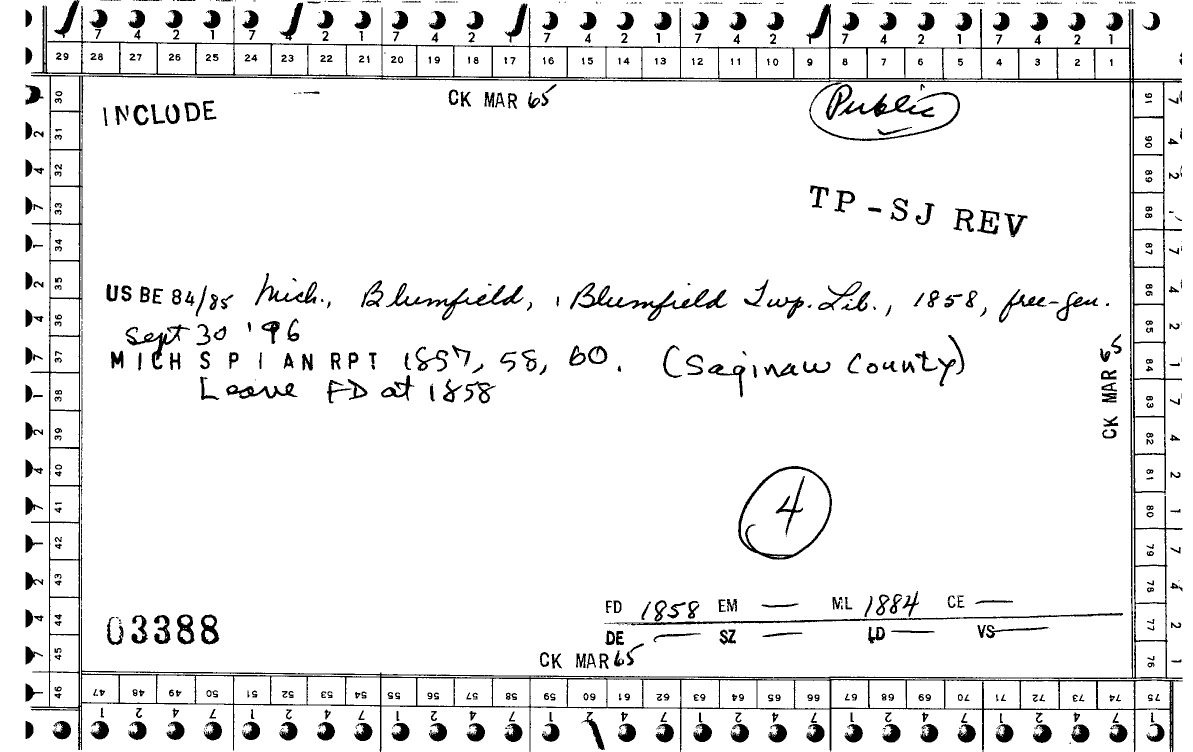 7 4 2 1 7 4 2 1 7 4 2 1 7 4 2 1 7 4 2 1 7 4 2 1 7 4 2 1
29 28 27 26 25 24 23 22 21 20 19 18 17 16 15 14 13 12 11 10 9 8 7 6 5 4 3 2 1
INCLUDE
CK MAR 65
Public
TP-SJ REV
US BE 84/85 Mich., Blumfield, Blumfield Twp. Lib., 1858, free-gen.
Sept 30 '96
MICH S P I AN RPT 1857, 58, 60. (Saginaw County)
Leave FD at 1858
CK MAR 65
4
FD 1858 EM — ML 1884 CE —
03388
DE — SZ — LD — VS —
CK MAR 65
30 31 32 33 34 35 36 37 38 39 40 41 42 43 44 45 46
91 90 89 88 87 86 85 84 83 82 81 80 79 78 77 76
47 48 49 50 51 52 53 54 55 56 57 58 59 60 61 62 63 64 65 66 67 68 69 70 71 72 73 74 75
1 2 4 7 1 2 4 7 1 2 4 7 1 2 4 7 1 2 4 7 1 2 4 7 1 2 4 7 1